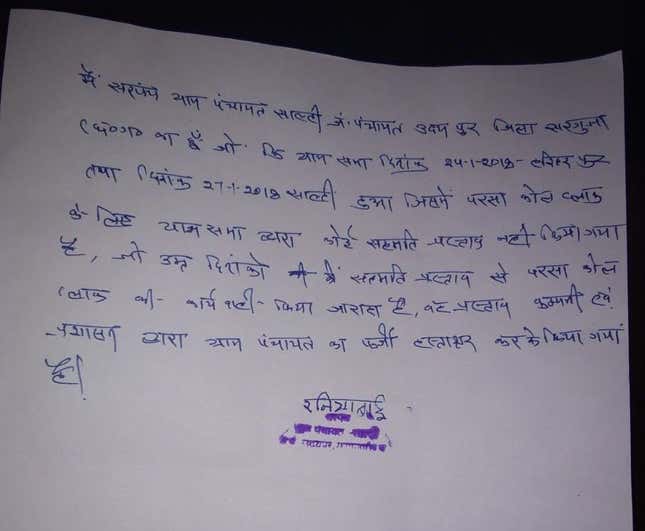 मैं सरपंच ग्राम पंचायत साल्ही ज. पंचायत उदयपुर जिला सरगुजा
(छ०ग०) का हूँ जो कि ग्राम सभा दिनांक 24-1-2018- हरिहरपुर
तथा दिनांक 27-1-2018 साल्ही हुआ जिसमें परसा कोल ब्लाक
के लिए ग्राम सभा द्वारा कोई सहमति प्रस्ताव नही किया गया
है, जो उक्त दिनांको में सहमति प्रस्ताव से परसा कोल
ब्लाक की- कार्यवाही- किया जा रहा है, वह प्रस्ताव कम्पनी एवं
प्रशासन द्वारा ग्राम पंचायत का फर्जी हस्ताक्षर करके किया गया
है।
सरपंच
ग्राम पंचायत साल्ही